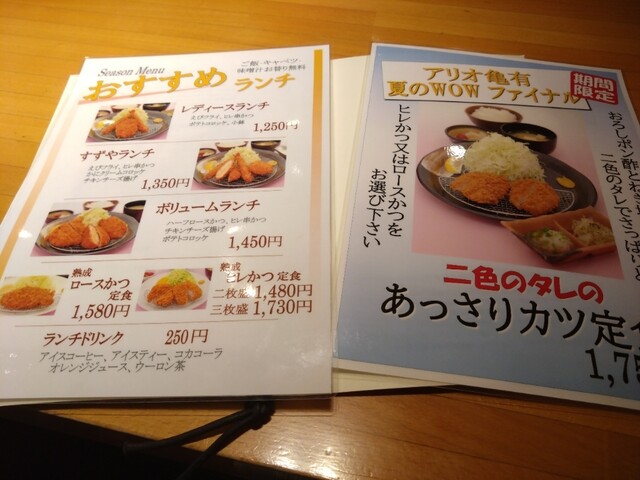 Season Menu
ご飯・キャベツ・
味噌汁お替り無料
おすすめ ランチ
レディースランチ
えびフライ、ヒレ串かつ
ポテトコロッケ、小鉢
1,250円
すずやランチ
えびフライ、ヒレ串かつ
かにクリームコロッケ
チキンチーズ揚げ
1,350円
ボリュームランチ
ハーフロースかつ、ヒレ串かつ
チキンチーズ揚げ
ポテトコロッケ
1,450円
熟成
ロースかつ
定食
1,580円
熟成
ヒレかつ 定食
二枚盛 1,480円
三枚盛 1,730円
ランチドリンク 250円
アイスコーヒー、アイスティー、コカコーラ
オレンジジュース、ウーロン茶
アリオ亀有
夏のWOW ファイナル
期間
限定
おろしポン酢と
二色のタレでさっぱり
ヒレかつ又はロースかつを
お選び下さい
二色のタレの
あっさりカツ定
1,7